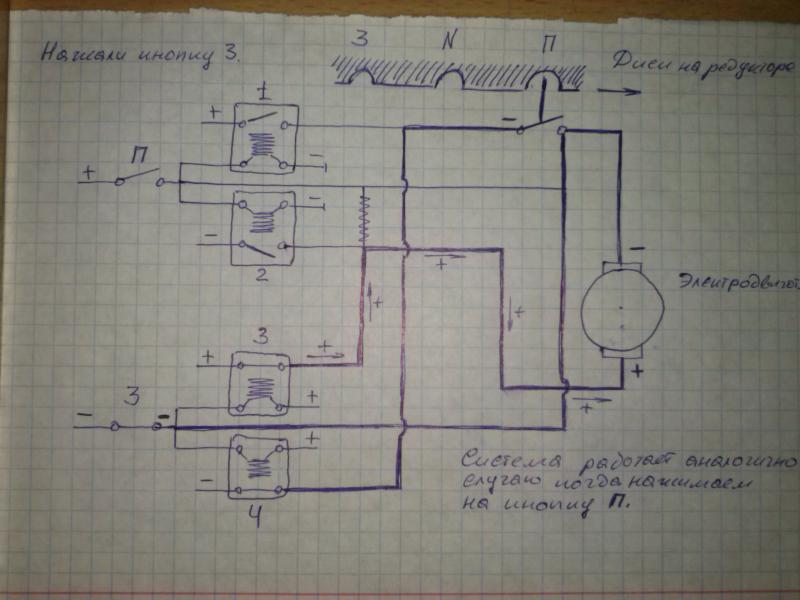 Нажали кнопку З.
З N П
Диск на редукторе
1
+
-
-
+ П
-
-
2
+
-
Электродвигат.
+
3
+
+
+
+
+
З
-
-
+
+
-
4
Система работает аналогично
случаю когда нажимаем
на кнопку П.